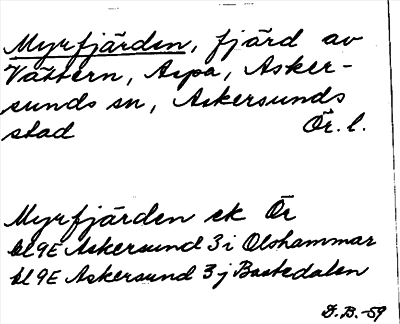 Myrfjärden, fjärd av
Vättern, Aspa, Asker-
sunds sn, Askersunds
stad Ör. l.
Myrfjärden ek Ör
bl 9E Askersund 3i Olshammar
bl 9E Askersund 3j Bastedalen
D.B.-59